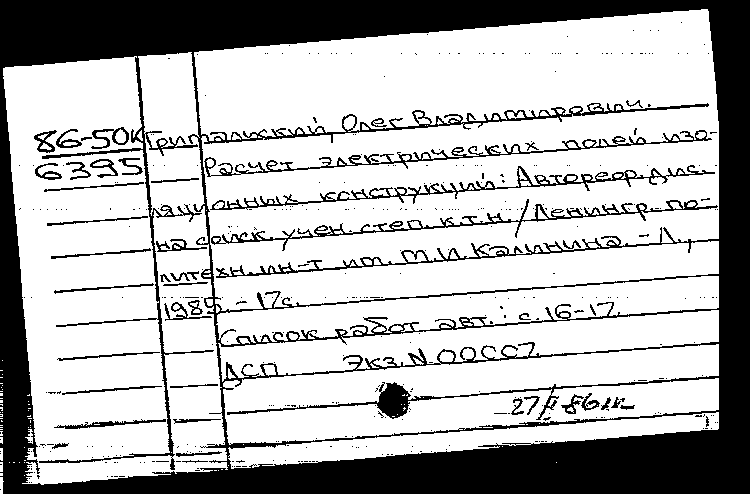 86-50к
6395
Григальский, Олег Владимирович.
Расчет электрических полей изо-
ляционных конструкций: Автореф. дис.
на соиск. учен. степ. к.т.н. / Ленингр. по-
литехн. ин-т им. М.И. Калинина. - Л.,
1985. - 17с.
Список работ авт.: с. 16-17.
ДСП. Экз. N 00007.
27/II 86